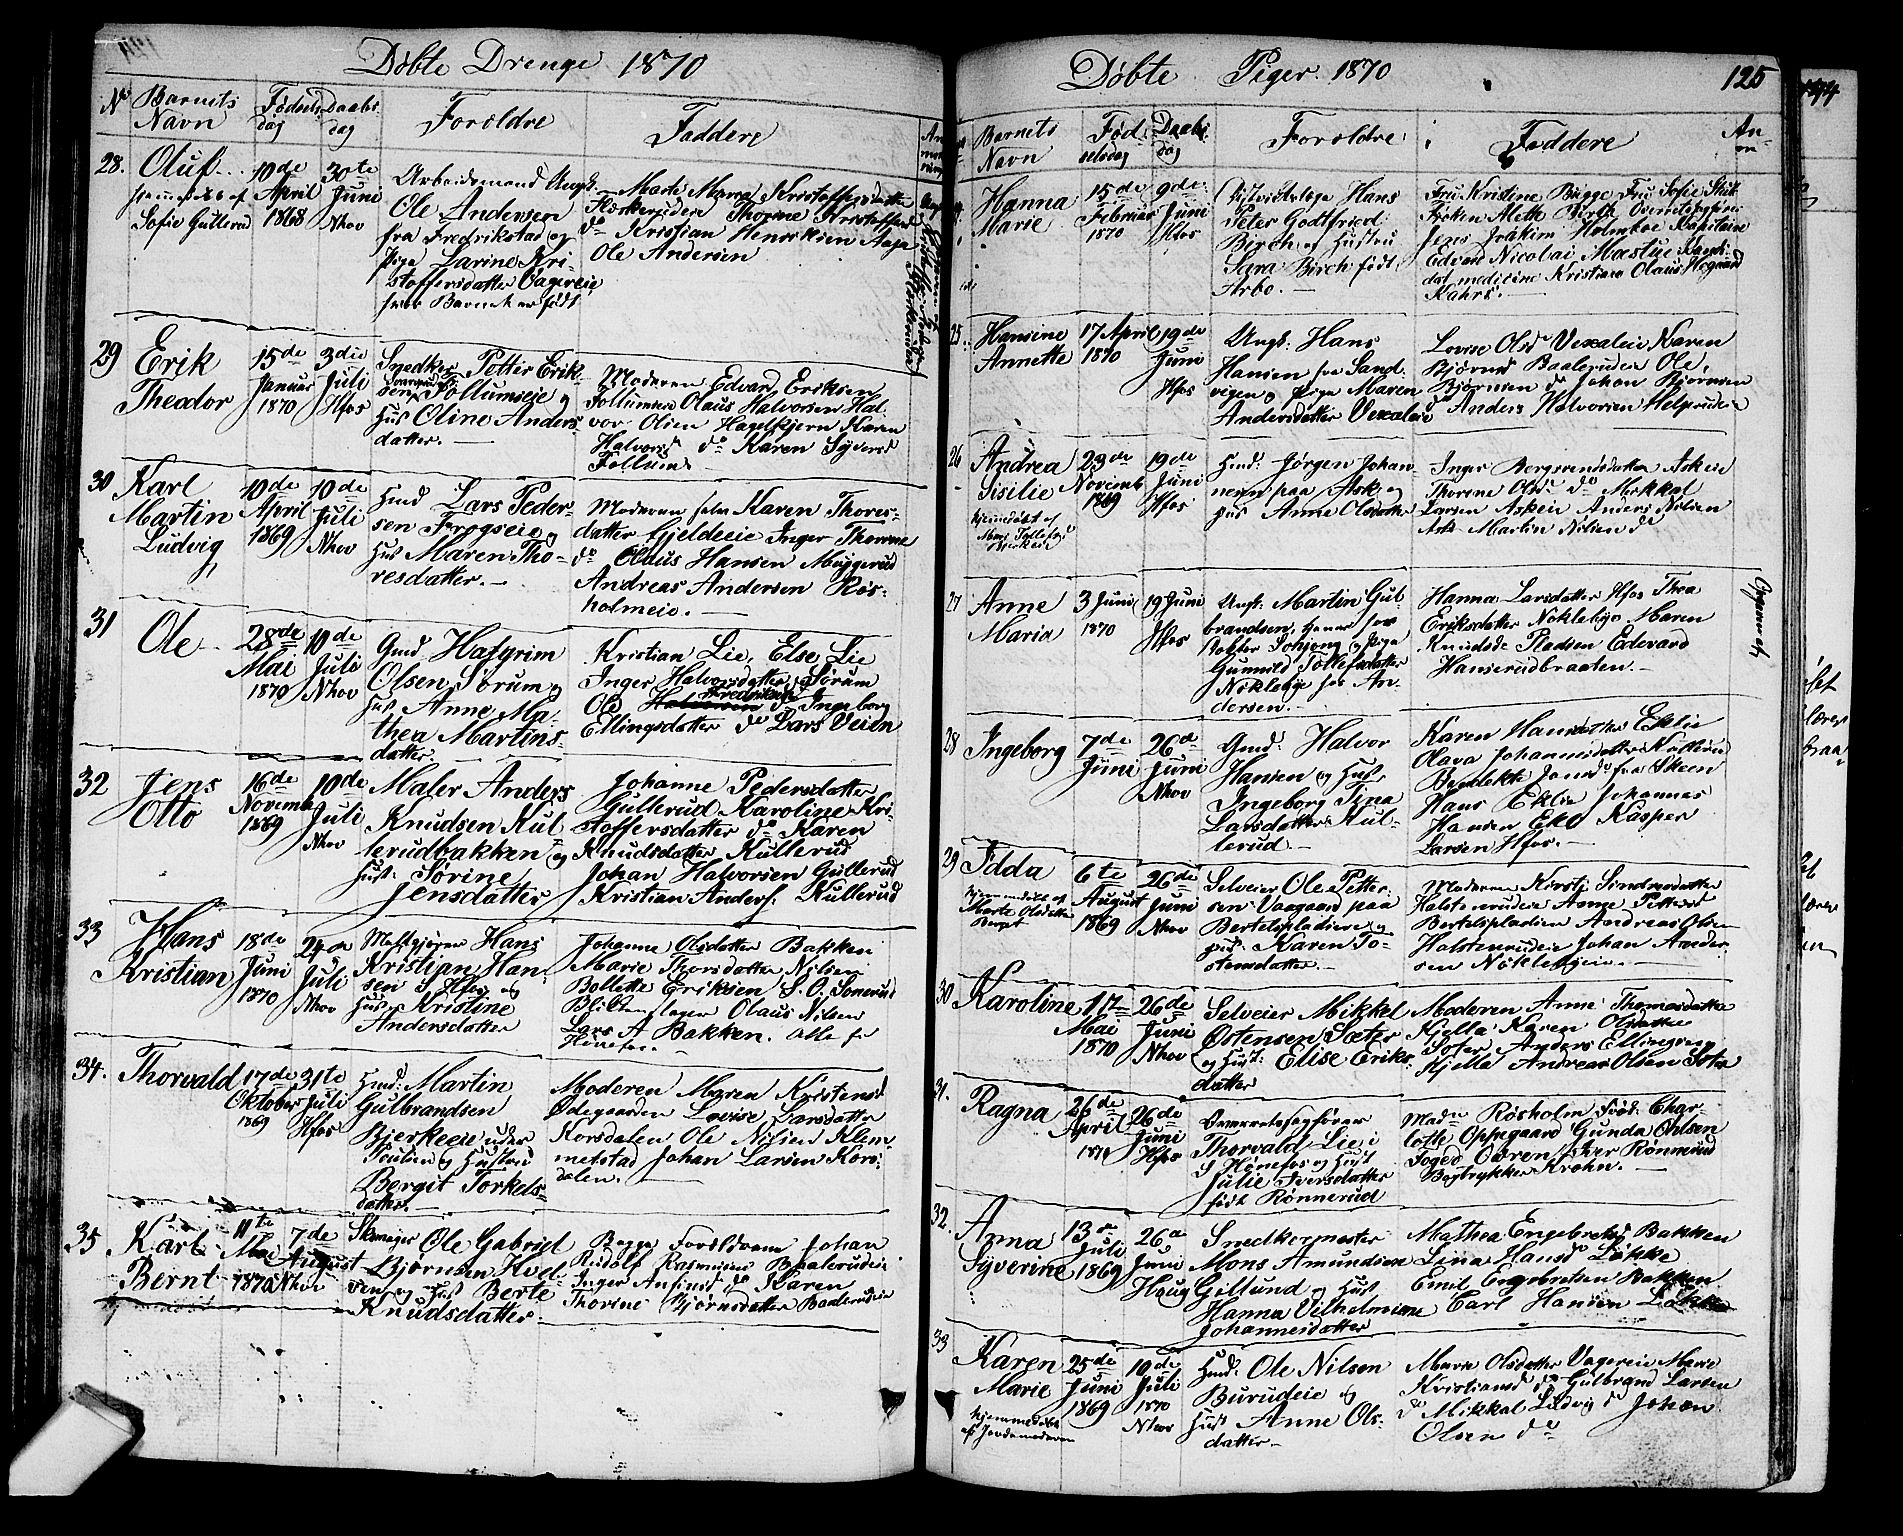 Døbte Drenge 1870
No Barnets Navn
Fødselsdag
Daabsdag
Forældre
Faddere
28. Oluf
hjemmedøbt af
Sofie Gullerud
10de
April
1868
30te
Juni
Nhov
Arbeidsmand Ungk.
Ole Andersen
fra Fredrikstad og
Pige Larine Kri-
stoffersdatter Vagereie
hvor Barnet er født
Marte Marea Kristoffersdatter
Thorine Kristoffersd
do Kristian Henriksen Aaga
Ole Andersen
29 Erik
Theodor
15de
Januar
1870
3die
Juli
Hfos
Snedker Petter Erik-
sen Tollumseie og
Hust Oline Anders-
datter.
Moderen Edvard Eriksen
Tollumseie Olaus Halvorsen Hal-
vor Olsen Hagelfjern Karen
Halvorsd do Karen Syversd
Follum
30 Karl
Martin
Ludvig
10de
April
1869
10de
Juli
Nhov
Husd Lars Peder-
sen Frogseie og
Hust Maren Tho-
resdatter.
Moderen selv Karen Thores-
datter Fjeldeeie Inger Thorine
do Olaus Hansen Muggerud
Andreas Andersen Røs-
holmeie.
31 Ole
28de
Mai
1870
10de
Juli
Nhov
Gmd Hafgrim
Olsen Sørum og
Hust Anne Ma-
thea Martins-
datter.
Kristian Lie, Else Lie
Inger Halvorsdatter Sørum
Ole Halvorsen Fredriksen do Ingeborg
Ellingsdatter do Lars Veien
32 Jens
Otto
16de
Novemb
1869
10de
Juli
Nhov
Maler Anders
Knudsen Kul
lerudbakken og
Hust: Sørine
Jensdatter
Johanne Pedersdatter
Gullerud Karoline Kri-
stoffersdatter do Karen
Knudsdatter Kullerud
Johan Halvorsen Gullerud
Kristian Anders. Kullerud
33 Hans
Kristian
18de
Juni
1870
24de
Juli
Nhov
Hans
Kristian Han-
sen S Hfos og
Hust Kristine
Andersdatter
Johanne Olsdatter Bakken
Marie Thorsdatter Nilsen
Bollette Eriksen S. O. Sonerud
Blikkenslager Olaus Nilsen
Lars A Bakken. alle fr
Hønefos.
34. Thorvald
17de
Oktober
1869
31te
Juli
Hfos
Husd: Martin
Gulbrandsen
Bjerkeeie under
og Hustru
Bergit Torkels-
datter.
Moderen Maren Kristensd
Ødegaarden Lovise Larsdatter
Korsdalen Ole Nilsen Klem-
metstad Johan Larsen Kors-
dalen.
35 Karl
Bernt
11te
Mai
1870
7de
August
Nhov
Skomager Ole Gabriel
Bjørnsen Hved-
ven og Hust Berte
Knudsdatter.
Begge Forældrene Johan
Rudolf Rasmussen Baalerudeie
Inger Antinsd do Karen
Thorine Bjørnsdatter Baalerudeie
Døbte Piger 1870
125
Barnets
Navn
Fød
selsdag
Daabs
dag
Forældre
Faddere
Hanna
Marie
15de
Februar
1870
9de
Juni
Hfos
Distriktslæge Hans
Peter Godtfried
Birch og Hustru
Sara Birch født
Arbo.
Fru Kristine Bugge Fru Sofie Skit
Frøken Alette Berth Overretssagfører
Jens Joakim Holmboe Kapitaine
Edvard Nicolai Mæstue Kandi-
dat medicine Kristian Olaus Hegaard
Kahrs.
25. Hansine
Annette
17 April
1870
19de
Juni
Hfos
Ungk. Hans
Hansen fra Sand-
vigen og Pige Maren
Andersdatter Vexaleie
Lovise Olsd Vexaleie Karen
Bjørnsd Baalerudeie Ole
Bjørnsen do Johan Bjørnsen
do Anders Halvorsen Helgerudeie
26 Andrea
Sisilie
hjemmedøbt af
23de
Novemb
1869
19de
Juni
Hfos
Husd: Jørgen Johan-
nesen paa Ask og
Hust Anne Olsdatter
Inger Bergsvendsdatter Askeie
Thorene Olsd. do Mikkel
Larsen Askeie Anders Nilsen
Ask Martin Nilsen do
27 Anne
Maria
3 Juni
1870
19 Juni
Hfos
Ungk: Martin Gul-
brandsen, tjener hos
Gunnild Tollefsdatter
Nøklebye hos An-
dersen.
Hanna Larsdatter Hfos Thea
Eriksdatter Nøklebye Maren
Knudsd Pladsen Edevard
Hanserudbraaten.
28 Ingeborg
7de
Juni
26d
Juni
Nhov
Gmd: Halvor
Hansen og Hust
Ingeborg Sina
Larsdatter Kul-
lerud.
Karen Hansdatter Eklie
Olava Johannesdatter Kullerud
Benedikte Jonsd fra Skeen
Hans Eklie Johannes
Hansen Ekl Kasper
Larsen Hfos.
29 Idda
hjemmedøbt af
Marte Olsdatter
Berget
6te
August
1869
26de
Juni
Nhov
Selveier Ole Petter-
sen Vaagaard paa
Bertelspladsen og
Hust: Karen To-
stensdatter.
Moderen Kirsti Sindresdatter
Halstenrudeie Anne Pettersd
Bertelspladsen Andreas Olsen
Halstenrudeie Johan Ander-
sen Nøklebyeie.
30 Karoline
17
Mai
1870
26de
Juni
Nhov
Selveier Mikkel
Østensen Sæter
og Hust: Elise Eriks-
datter
Moderen Anne Thomasdatter
Kjella Karen Olsdatter
Soter Anders Ellingsen
Kjella Andreas Olsen Soter
31. Ragna
26de
April
1870
26de
Juni
Hfos
Overretssagfører
Thorvald Lie i
S Hønefos og Hust
Julie Iversdatter
født Rønnerud
Madm Røsholm Frøk: Char-
lotte Oppegaard Gunda Ohlsen
Foged Owren Rønnerud
Bogtrykker Krohn.
32. Anna
Syverine
13de
Juli
1869
26d
Juni
Haug
Snedkermester
Mons Amundsen
Gillund og Hust
Hanna Vilhelmine
Johannesdatter
Mathea Engebretsd Bakken
Lina Hansd Løkke
Emil Engebretsen Bakken
Carl Hansen Løkke
33 Karen
Marie
hjemmedøbt
af Jordemoderen
25de
Juni
1869
10de
Juli
1870
Nhov
Husd: Ole Nilsen
Burudeie og
Hust Anne Ols-
datter.
Marie Olsdatter Vagereie Marie
Kristiansd do Gulbrand Larsen
do Mikkal Ludvig do Johan
Olsen do